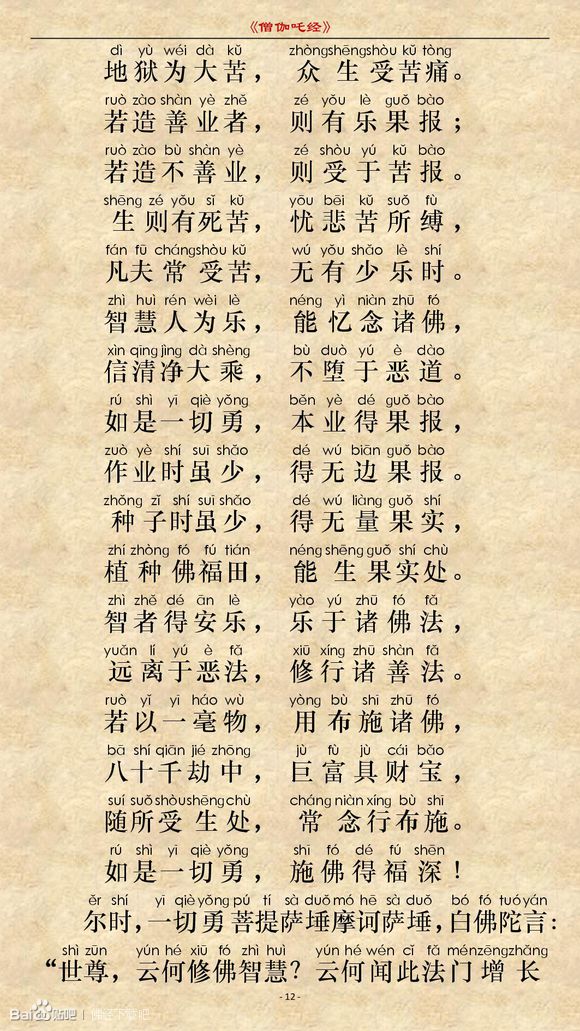 《僧伽吒经》
dì yù wéi dà kǔ zhòngshēngshòu kǔ tòng
地狱为大苦，众生受苦痛。
ruò zào shàn yè zhě zé yǒu lè guǒ bào
若造善业者，则有乐果报；
ruò zào bù shàn yè zé shòu yú kǔ bào
若造不善业，则受于苦报。
shēng zé yǒu sǐ kǔ yōu bēi kǔ suǒ fù
生则有死苦，忧悲苦所缚，
fán fū chángshòu kǔ wú yǒu shǎo lè shí
凡夫常受苦，无有少乐时。
zhì huì rén wèi lè néng yì niàn zhū fó
智慧人为乐，能忆念诸佛，
xìn qīng jìng dà shèng bù duò yú è dào
信清净大乘，不堕于恶道。
rú shì yī qiè yǒng běn yè dé guǒ bào
如是一切勇，本业得果报，
zuò yè shí suī shǎo dé wú biān guǒ bào
作业时虽少，得无边果报。
zhǒng zǐ shí suī shǎo dé wú liàng guǒ shí
种子时虽少，得无量果实，
zhí zhòng fó fú tián néng shēng guǒ shí chù
植种佛福田，能生果实处。
zhì zhě dé ān lè yào yú zhū fó fǎ
智者得安乐，乐于诸佛法，
yuǎn lí yú è fǎ xiū xíng zhū shàn fǎ
远离于恶法，修行诸善法。
ruò yǐ yī háo wù yòng bù shī zhū fó
若以一毫物，用布施诸佛，
bā shí qiān jié zhōng jù fù jù cái bǎo
八十千劫中，巨富具财宝，
suí suǒ shòu shēng chù cháng niàn xíng bù shī
随所受生处，常念行布施。
rú shì yī qiè yǒng shī fó dé fú shēn
如是一切勇，施佛得福深！
ěr shí yī qiè yǒng pú tí sà duǒ mó hē sà duǒ bó fó tuó yán
尔时，一切勇菩提萨埵摩诃萨埵，白佛陀言：
shì zūn yún hé xiū fó zhì huì yún hé wén cǐ fǎ ménzēngzhǎng
“世尊，云何修佛智慧？云何闻此法门增长
- 12 -
Bai贴吧 | 佛经下载吧